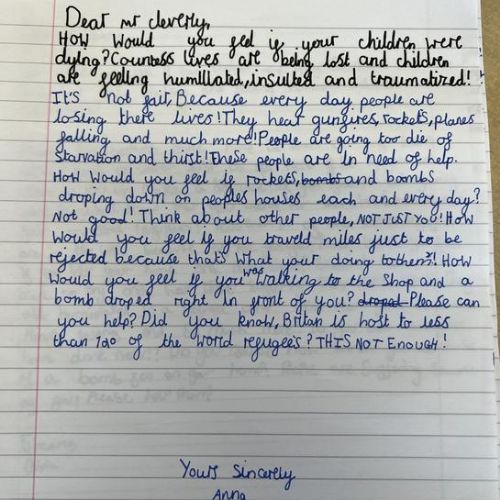 Dear mr cleverly,
How would you feel if your children were
dying? Countess lives are being lost and children
are feeling humilated, insulted and traumatized!
It's not fair, Because every day people are
losing there lives! They hear gunfires, rockets, planes
falling and much more! People are going too die of
Starvation and thirst! These people are in need of help.
How would you feel if rockets, bombs and boombs
droping down on peoples houses each and every day?
Not good! Think about other people, NOT JUST YOU! How
would you feel if you traveld miles just to be
rejected because thats what your doing to them?! How
would you feel if you was walking to the shop and a
bomb droped right in front of you? droped Please can
you help? Did you know, Britan is host to less
than 1% of the world refugees? THIS NOT ENOUGH!
Yours Sincerely
Anna